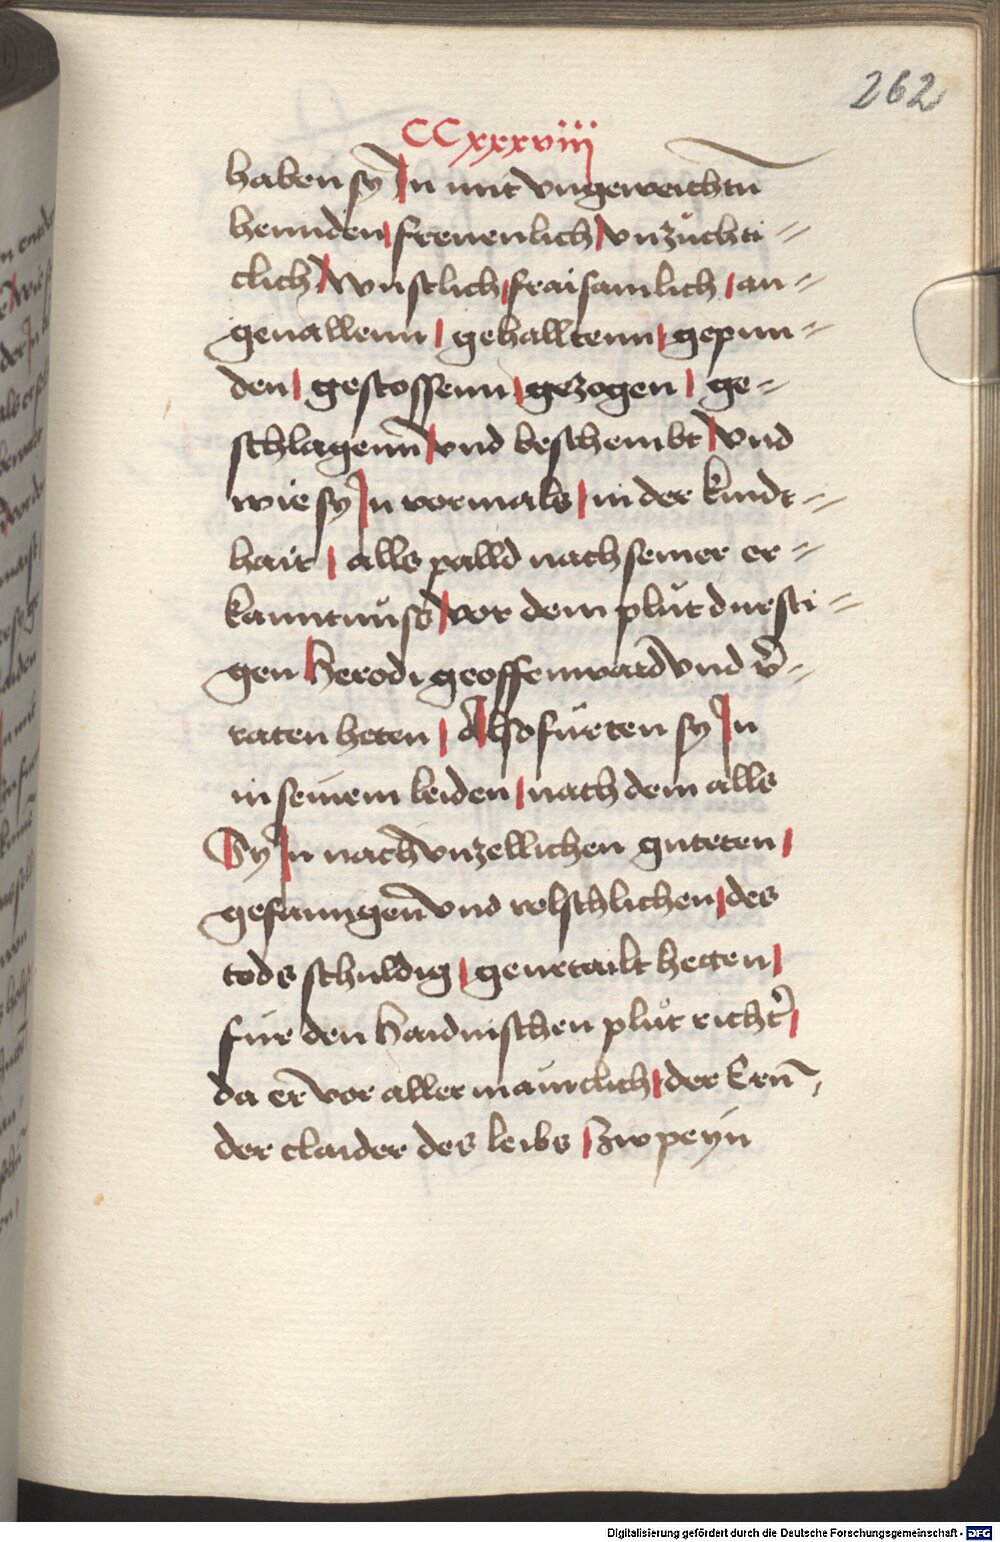 262
CCxxxviiij
haben sy Jn mit vngeweichtn̄
hennden / freuenlich / vnzüchti=
clich / wüstlich / fraisamlich / an=
geuallenn / gehalltenn / gepun=
den / gestossenn / gezogen / ge=
schlagenn̄ / vnd beschembt / vnd
wie sy Jn vormals / in der kindt=
hait / alls palld nach seiner er=
kanntnüss / vor dem plůt dursti=
gen Herodi geoffenward vnd v̄=
raten heten / Also fürten sy Jn
in seinem leiden / nach dem alls
Sy Jn nach vnzellichen guteten /
gefanngen̄ vnd velschlichen / des
tods schuldig / geuertailt hetten /
für den haidnischen plůt richt̄ /
da er vor aller maincklich / der Ern̄ /
der claider des leibs / zw peyn
Digitalisierung gefördert durch die Deutsche Forschungsgemeinschaft - DFG